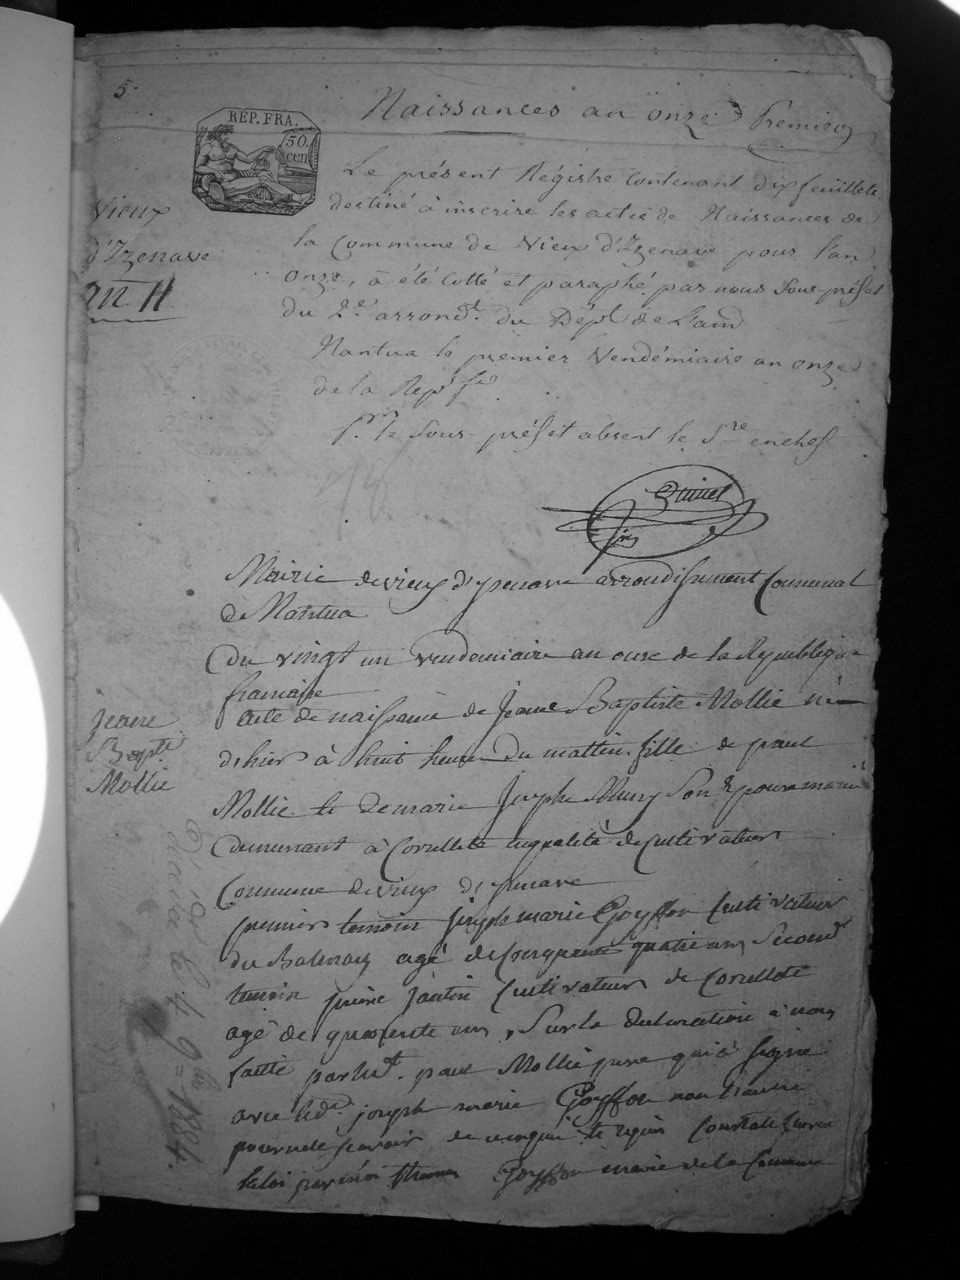 5.
Naissances an onze Premier
RÉP. FRA.
50.
cen
Le présent Régistre contenant dix feuillets
destiné à inscrire les actes de Naissances de
la Commune de Vieux d'Izenave pour l'an
onze, a été cotté et paraphé par nous Sous-préfet
du 2e. arrondt. du Dépt de l'ain
Nantua le premier Vendémiaire an onze
de la Rep. fse
Pr. le Sous-préfet absent le Sre en chef
Vieux
d'Izenave
an 11
Mairie de vieux d'izenave arrondissement Communal
de Nantua
Du vingt un vendemiaire an onze de la Republique
francaise
acte de naissance de Jeane Baptiste Mollie née
d'hier à huit heure du mattin fille de paul
Mollie et de marie Josephe son Epouse marié
demeurant à Corcellete en qualité de Cultivateur
Commune de vieux d'izenave
Jeane
Baptte
Mollie
premier temoin joseph marie Goyffon Cultivateur
du Balmay agé de Cinquante quatre ans Second
temoin pierre jantin Cultivateur de Corcellete
agé de quarente ans, Sur la declaration à nous
faitte par led. paul Mollie pere qui à signé
avec led. joseph marie Goyffon non l'autre
pour ne scavoir de ce enquis et requis Constaté Suivan
la loi par moi thomas Goyffon maire de la Commune